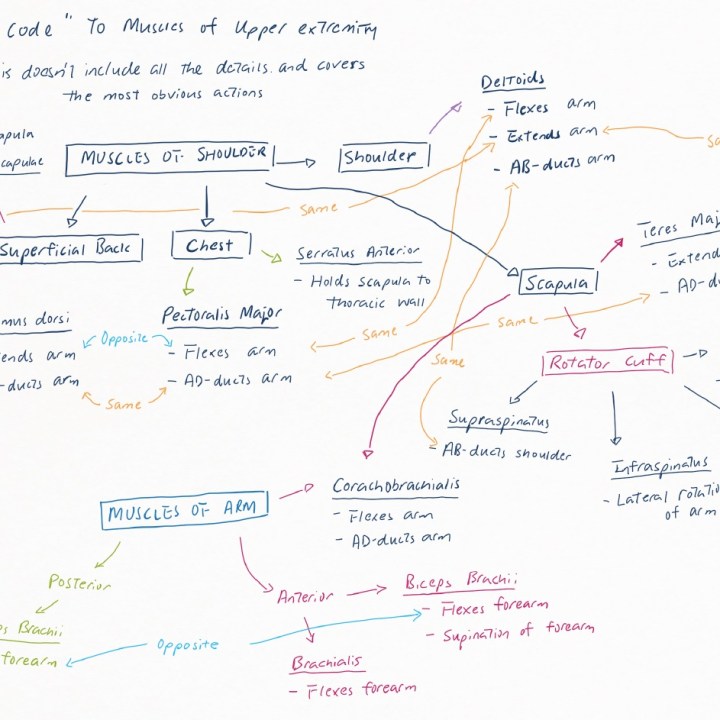 Code" To Muscles of Upper extremity
is doesn't include all the details. and covers
the most obvious actions
Deltoids
- Flexes arm
- Extends arm
- AB-ducts arm
MUSCLES OF SHOULDER
Shoulder
Same
Superficial Back
Chest
Serratus Anterior
- Holds scapula to
thoracic wall
Scapula
Teres Maj
- Extend
- AD-du
mus dorsi
ends arm
-ducts arm
Opposite
Same
Pectoralis Major
- Flexes arm
- AD-ducts arm
Same
Same
Same
Rotator Cuff
Supraspinatus
- AB-ducts shoulder
Infraspinatus
- Lateral rotatio
of arm
MUSCLES OF ARM
Corachobrachialis
- Flexes arm
- AD-ducts arm
Posterior
Anterior
Biceps Brachii
- Flexes forearm
- Supination of forearm
ps Brachii
forearm
Opposite
Brachialis
- Flexes forearm